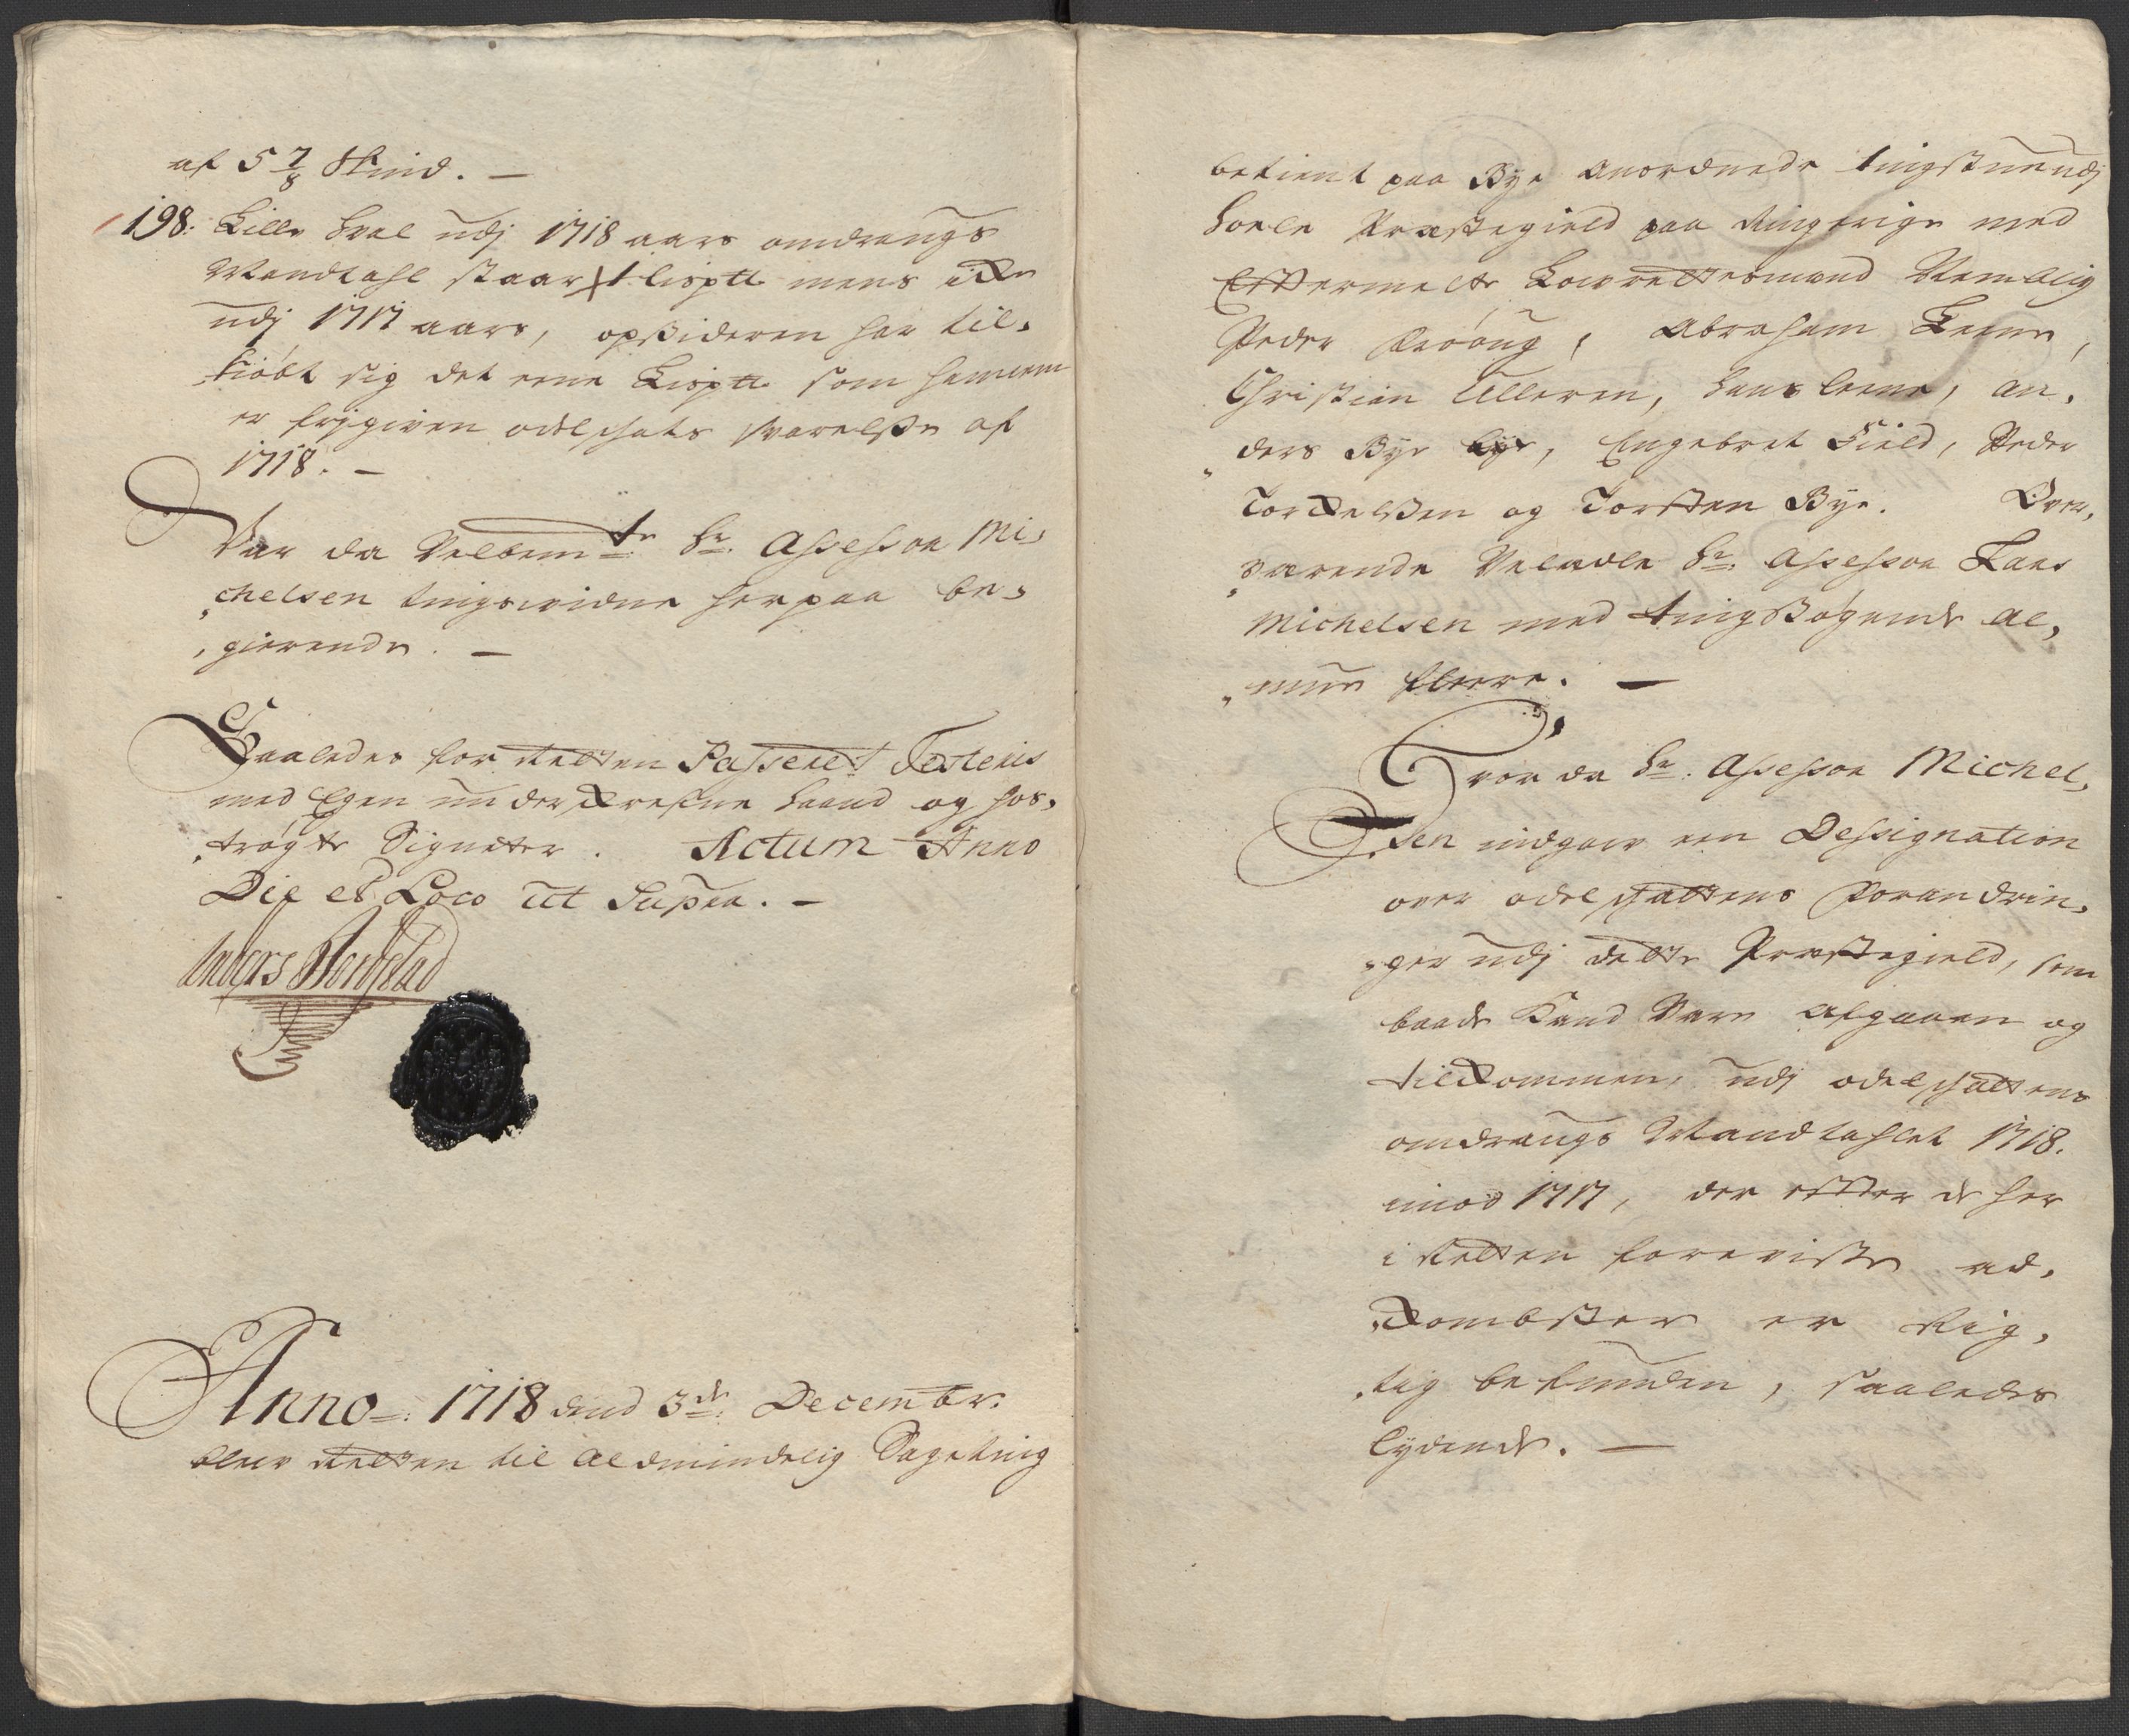 af 5 7/8 Skind. —
198: Lille Hval udj 1718 aars omdrengs
Mandtahl staar 1 lispd. mens icke
udj 1717 aars, opsideren har til,
kiøbt sig det eene Lispd. som hannem
er frjgiven odelschats svarelsse af
1718. —
Var da Velbemte Hr. Assessor Mi,
chelsen tingsvidne herpaa be,
gierende. —
Saaledes for Retten Passeret Testeris
med Egen underskrefne haand og hos,
trøgte Signeter. Actum Anno
Die et Loco ut Supra. —
Anders
Anno: 1718 dend 3de Decembr.
blev Retten til Aldmindelig Sageting
betient paa Bye anordnede tingstue udj
Hoele Præstegield paa Ringerige med
Efftermelte Lowrettesmænd Nemblig
Peder Frøoug, Abraham Leene,
Christian Ulleren, Hans Leene, An,
ders Bye, Engebret Field, Peder
Torckelsen og Torsten Bye. Over,
værende Velædle Hr. Assessor Lars
Michelsen med tingsøgende Al,
mue fleere. —
Hvor da Hr. Assessor Michel,
sen indgav een Dessignation
over odelschattens forandrin,
ger udj dette Præstegield, som
baade kand Være afgaaen og
tilkommen, udj odelschattens
omdrengs Mandtahlet 1718.
imod 1717, der effter de her
i Retten foreviste ad,
kombster er Rig,
tig befunden, saaledes
lydende. —